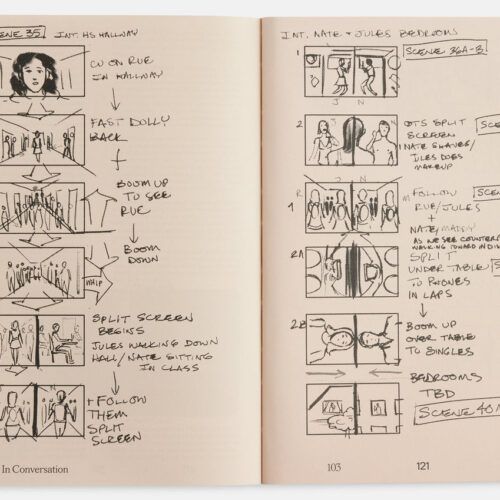 SCENE 35
INT. HS HALLWAY
CU ON RUE
IN HALLWAY
FAST DOLLY
BACK
+
BOOM UP
TO SEE
RUE
BOOM
DOWN
WHIP
SPLIT SCREEN
BEGINS
JULES WALKING DOWN
HALL/NATE SITTING
IN CLASS
+ FOLLOW
THEM
SPLIT
SCREEN
In Conversation
INT. NATE + JULES BEDROOMS
1
SCENE 36A-B
J N
2
J N
OTS SPLIT
SCREEN
NATE SHAVES/
JULES DOES
MAKEUP
R J N M
1
FOLLOW
RUE/JULES
+
NATE/MADDY
AS WE SEE
WALKING TOWARD
2A
SPLIT
UNDER TABLE
TO PHONES
IN LAPS
2B
BOOM UP
OVER TABLE
TO SINGLES
BEDROOMS
TBD
SCENE 40
103
121